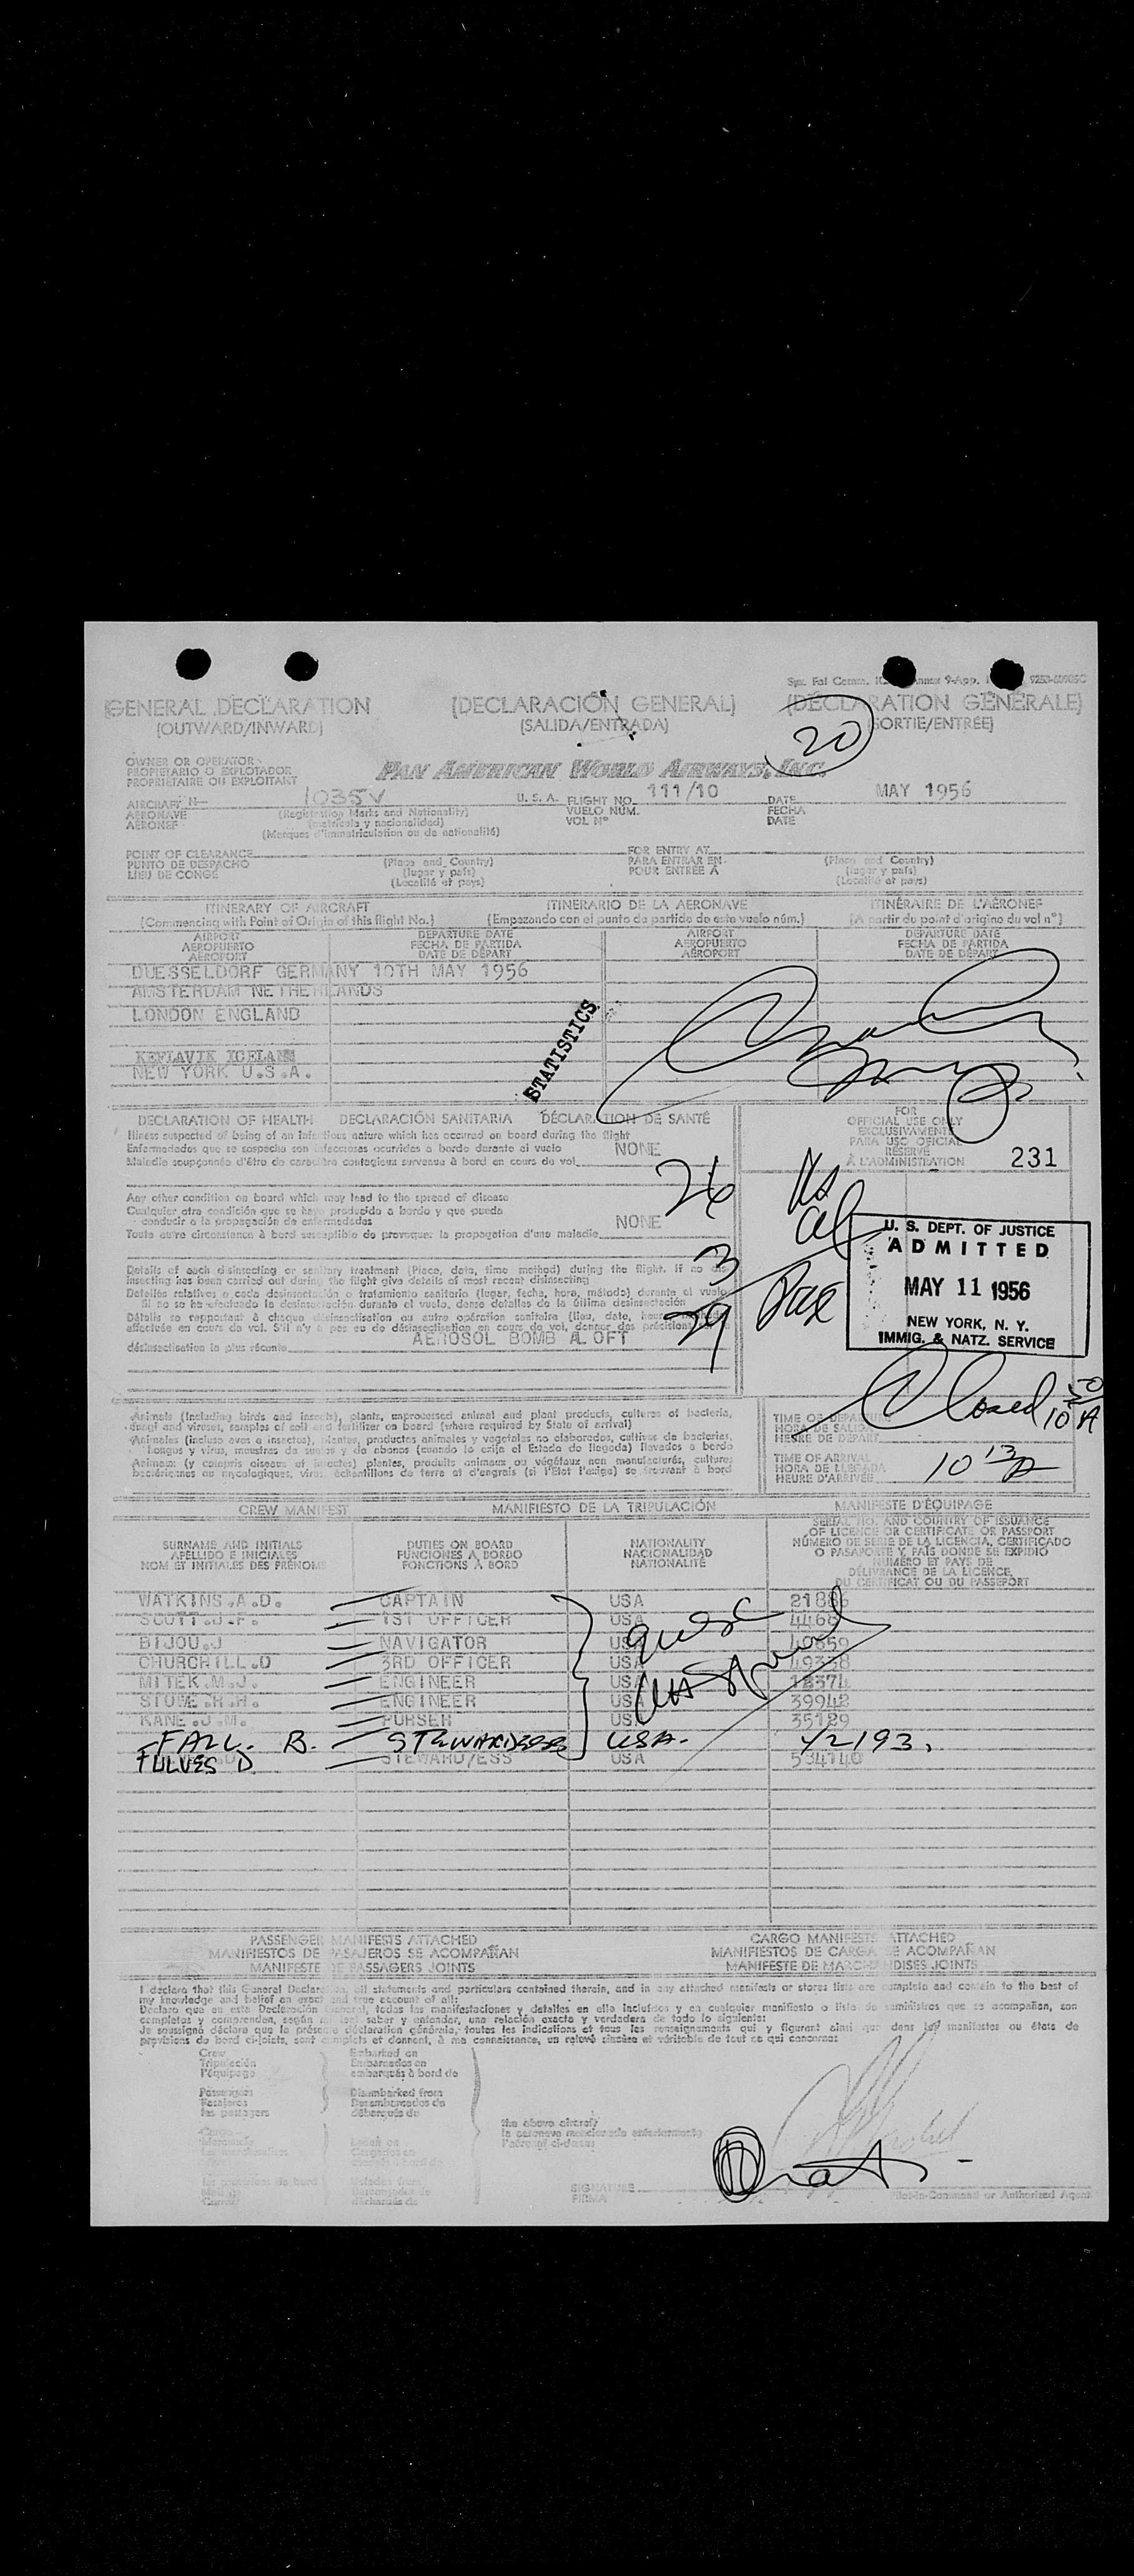 GENERAL DECLARATION (DECLARACIÓN GENERAL) (DÉCLARATION GÉNÉRALE)
(OUTWARD/INWARD) (SALIDA/ENTRADA) (SORTIE/ENTRÉE)
20
OWNER OR OPERATOR
PROPIETARIO O EXPLOTADOR
PROPRIETAIRE OU EXPLOITANT
PAN AMERICAN WORLD AIRWAYS, INC.
AIRCRAFT N- 1035V U. S. A. FLIGHT NO. 111/10 DATE MAY 1956
AERONAVE (Registration Marks and Nationality) VUELO NUM. FECHA
AÉRONEF (matricula y nacionalidad) VOL Nº DATE
(Marques d'immatriculation ou de nationalité)
POINT OF CLEARANCE (Place and Country) FOR ENTRY AT (Place and Country)
PUNTO DE DESPACHO (lugar y país) PARA ENTRAR EN (lugar y país)
LIEU DE CONGÉ (Localité et pays) POUR ENTRÉE A (Localité et pays)
ITINERARY OF AIRCRAFT ITINERARIO DE LA AERONAVE ITINÉRAIRE DE L'AÉRONEF
(Commencing with Point of Origin of this flight No.) (Empezando con el punto de partida de este vuelo núm.) (A partir du point d'origine du vol nº)
AIRPORT DEPARTURE DATE AIRPORT DEPARTURE DATE
AEROPUERTO FECHA DE PARTIDA AEROPUERTO FECHA DE PARTIDA
AÉROPORT DATE DE DÉPART AÉROPORT DATE DE DÉPART
DUESSELDORF GERMANY 10TH MAY 1956
AMSTERDAM NETHERLANDS
LONDON ENGLAND
KEFLAVIK ICELAND
NEW YORK U.S.A.
STATISTICS
DECLARATION OF HEALTH DECLARACIÓN SANITARIA DÉCLARATION DE SANTÉ
Illness suspected of being of an infectious nature which has occured on board during the flight
Enfermedades que se sospecha son infecciosas ocurridas a bordo durante el vuelo
Maladie soupçonnée d'être de caractère contagieux survenue à bord en cours de vol NONE
Any other condition on board which may lead to the spread of disease
Cualquier otra condición que se haya producido a bordo y que pueda
conducir a la propagación de enfermedades
Toute autre circonstance à bord susceptible de provoquer la propagation d'une maladie NONE
Details of each disinsecting or sanitary treatment (Place, date, time method) during the flight. If no dis-
insecting has been carried out during the flight give details of most recent disinsecting
Detalles relativos a cada desinsectación o tratamiento sanitario (lugar, fecha, hora, método) durante el vuelo
Si no se ha efectuado la desinsectación durante el vuelo, dense detalles de la última desinsectación
désinsectisation la plus récente
AEROSOL BOMB ALOFT
26
3
29
FOR
OFFICIAL USE ONLY
EXCLUSIVAMENTE
PARA USO OFICIAL
RÉSERVÉ
À L'ADMINISTRATION 231
U. S. DEPT. OF JUSTICE
ADMITTED
MAY 11 1956
NEW YORK, N. Y.
IMMIG. & NATZ. SERVICE
Closed 10 50 A
Animals (including birds and insects), plants, unprocessed animal and plant products, cultures of bacteria,
fungi and viruses, samples of soil and fertilizer on board (where required by State of arrival)
Animales (incluso aves e insectos), plantas, productos animales y vegetales no elaborados, cultivos de bacterias,
hongos y virus, muestras de suelos y de abonos (cuando lo exija el Estado de llegada) llevados a bordo
Animaux (y compris oiseaux et insectes) plantes, produits animaux ou végétaux non manufacturés, cultures
bactériennes ou mycologiques, virus, échantillons de terre et d'engrais (si l'Etat l'exige) se trouvant à bord
TIME OF DEPARTURE
HORA DE SALIDA
HEURE DE DEPART
TIME OF ARRIVAL
HORA DE LLEGADA
HEURE D'ARRIVÉE 10 13 A
CREW MANIFEST MANIFIESTO DE LA TRIPULACIÓN MANIFESTE D'ÉQUIPAGE
SURNAME AND INITIALS
APELLIDO E INICIALES
NOM ET INITIALES DES PRÉNOMS
DUTIES ON BOARD
FUNCIONES A BORDO
FONCTIONS À BORD
NATIONALITY
NACIONALIDAD
NATIONALITÉ
SERIAL NO. AND COUNTRY OF ISSUANCE
OF LICENCE OR CERTIFICATE OR PASSPORT
NÚMERO DE SERIE DE LA LICENCIA, CERTIFICADO
O PASAPORTE Y PAÍS DONDE SE EXPIDIÓ
NUMÉRO ET PAYS DE
DÉLIVRANCE DE LA LICENCE,
DU CERTIFICAT OU DU PASSEPORT
WATKINS.A.D. CAPTAIN USA 21886
SCOTT.J.F. 1ST OFFICER USA 4468
BIJOU.J NAVIGATOR USA 40659
CHURCHILL.D 3RD OFFICER USA 49338
MITEK.M.J. ENGINEER USA
STOWE.H.H. ENGINEER USA 39942
KANE.J.M. PURSER USA 35129
FALL. B. STEWARDESS USA.
FULVES D. STEWARD/ESS USA
PASSENGER MANIFESTS ATTACHED CARGO MANIFESTS ATTACHED
MANIFIESTOS DE PASAJEROS SE ACOMPAÑAN MANIFIESTOS DE CARGA SE ACOMPAÑAN
MANIFESTE DE PASSAGERS JOINTS MANIFESTE DE MARCHANDISES JOINTS
I declare that this General Declaration, all statements and particulars contained therein, and in any attached manifests or stores lists are complete and contain to the best of
my knowledge and belief an exact and true account of all:
Declaro que en esta Declaración General, todas las manifestaciones y detalles en ella incluidos y en cualquier manifiesto o lista de suministros que se acompañan, son
completos y comprenden, según mi leal saber y entender, una relación exacta y verdadera de todo lo siguiente:
Je soussigné déclare que la présente déclaration générale, toutes les indications et tous les renseignements qui y figurent ainsi que dans les manifestes ou états de
provisions de bord ci-joints, sont complets et donnent, à ma connaissance, un relevé sincère et véritable de tout ce qui concerne:
Crew Embarked on
Tripulación Embarcados en
l'équipage embarqués à bord de
Passengers Disembarked from
Pasajeros Desembarcados de
les passagers débarqués de
the above aircraft
la aeronave mencionada anteriormente
l'aéronef ci-dessus
SIGNATURE
FIRMA
Pilot-in-Command or Authorized Agent